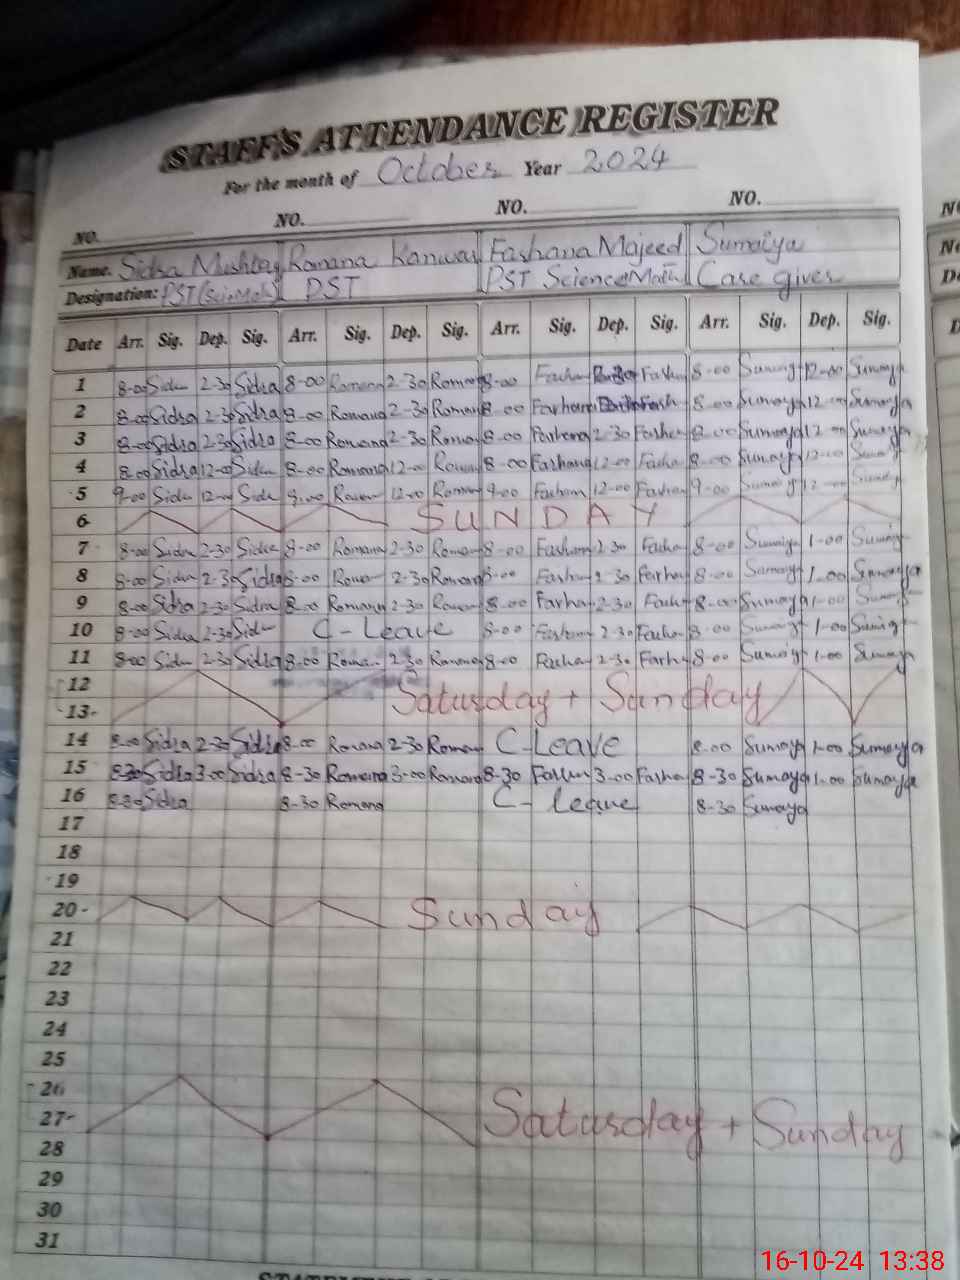 STAFF'S ATTENDANCE REGISTER
For the month of October Year 2024
NO. NO. NO. NO.
Name. Sidra Mushtaq Romana Kanwal Farhana Majeed Sumaiya
Designation: PST (Sci Math) PST PST Science Math Care giver
Date Arr. Sig. Dep. Sig. Arr. Sig. Dep. Sig. Arr. Sig. Dep. Sig. Arr. Sig. Dep. Sig.
1 8-00 Sidra 2-30 Sidra 8-00 Romana 2-30 Romana 8-00 Farhan Farhan 8-00 Sumaya 12-00 Sumaya
2 8-00 Sidra 2-30 Sidra 8-00 Romana 2-30 Romana 8-00 Farhana Farh 8-00 Sumaya 12-00 Sumaya
3 8-00 Sidra 2-30 Sidra 8-00 Romana 2-30 Roman 8-00 Farhana 2-30 Farhan 8-00 Sumaya 12-00 Sumaya
4 8-00 Sidra 12-00 Sidra 8-00 Romana 12-00 Roman 8-00 Farhana 12-00 Farha 8-00 Sumaya 12-00 Sumay
5 9-00 Sidra 12-00 Sidra 9-00 Roman 12-00 Roman 9-00 Farhan 12-00 Farhan 9-00 Sumay 12-00 Sumay
6 SUNDAY
7 8-00 Sidra 2-30 Sidra 8-00 Romana 2-30 Roman 8-00 Farhan 2-30 Farha 8-00 Sumaiya 1-00 Sumaiy
8 8-00 Sidra 2-30 Sidra 8-00 Roman 2-30 Romana 8-00 Farhan 2-30 Farhan 8-00 Sumaya 1-00 Sumaya
9 8-00 Sidra 2-30 Sidra 8-00 Romana 2-30 Roman 8-00 Farhan 2-30 Farha 8-00 Sumaya 1-00 Sumay
10 8-00 Sidra 2-30 Sidr C-Leave 8-00 Farhan 2-30 Farha 8-00 Sumay 1-00 Sumaiy
11 8-00 Sidra 2-30 Sidra 8-00 Roma 2-30 Romana 8-00 Farha 2-30 Farha 8-00 Sumay 1-00 Sumaya
12 Saturday + Sunday
13
14 8-00 Sidra 2-30 Sidra 8-00 Romana 2-30 Roman C-Leave 8-00 Sumaya 1-00 Sumaya
15 8-30 Sidra 3-00 Sidra 8-30 Romana 3-00 Romana 8-30 Farhan 3-00 Farha 8-30 Sumaya 1-00 Sumaya
16 8-30 Sidra 8-30 Romana C-leave 8-30 Sumaya
17
18
19
20 Sunday
21
22
23
24
25
26
27 Saturday + Sunday
28
29
30
31
16-10-24 13:38